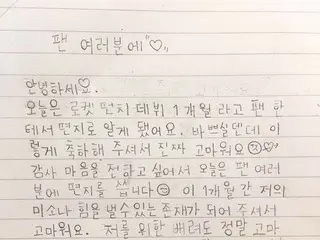 팬 여러분에"♡"
안녕하세요♡.
오늘은 로켓 펀치 데뷔 1개월 라고 팬 한
테서 편지로 알게 됐어요. 바쁘실텐데 이
렇게 축하해 주셔서 진짜 고마워요☺♡
감사 마음을 전하고 싶어서 오늘은 팬 여러
분에 편지를 씁니다☺ 이 1개월 간 저의
미소나 힘을 낼수있는 존재가 되어 주셔서
고마워요. 저를 위한 배려도 정말 고마